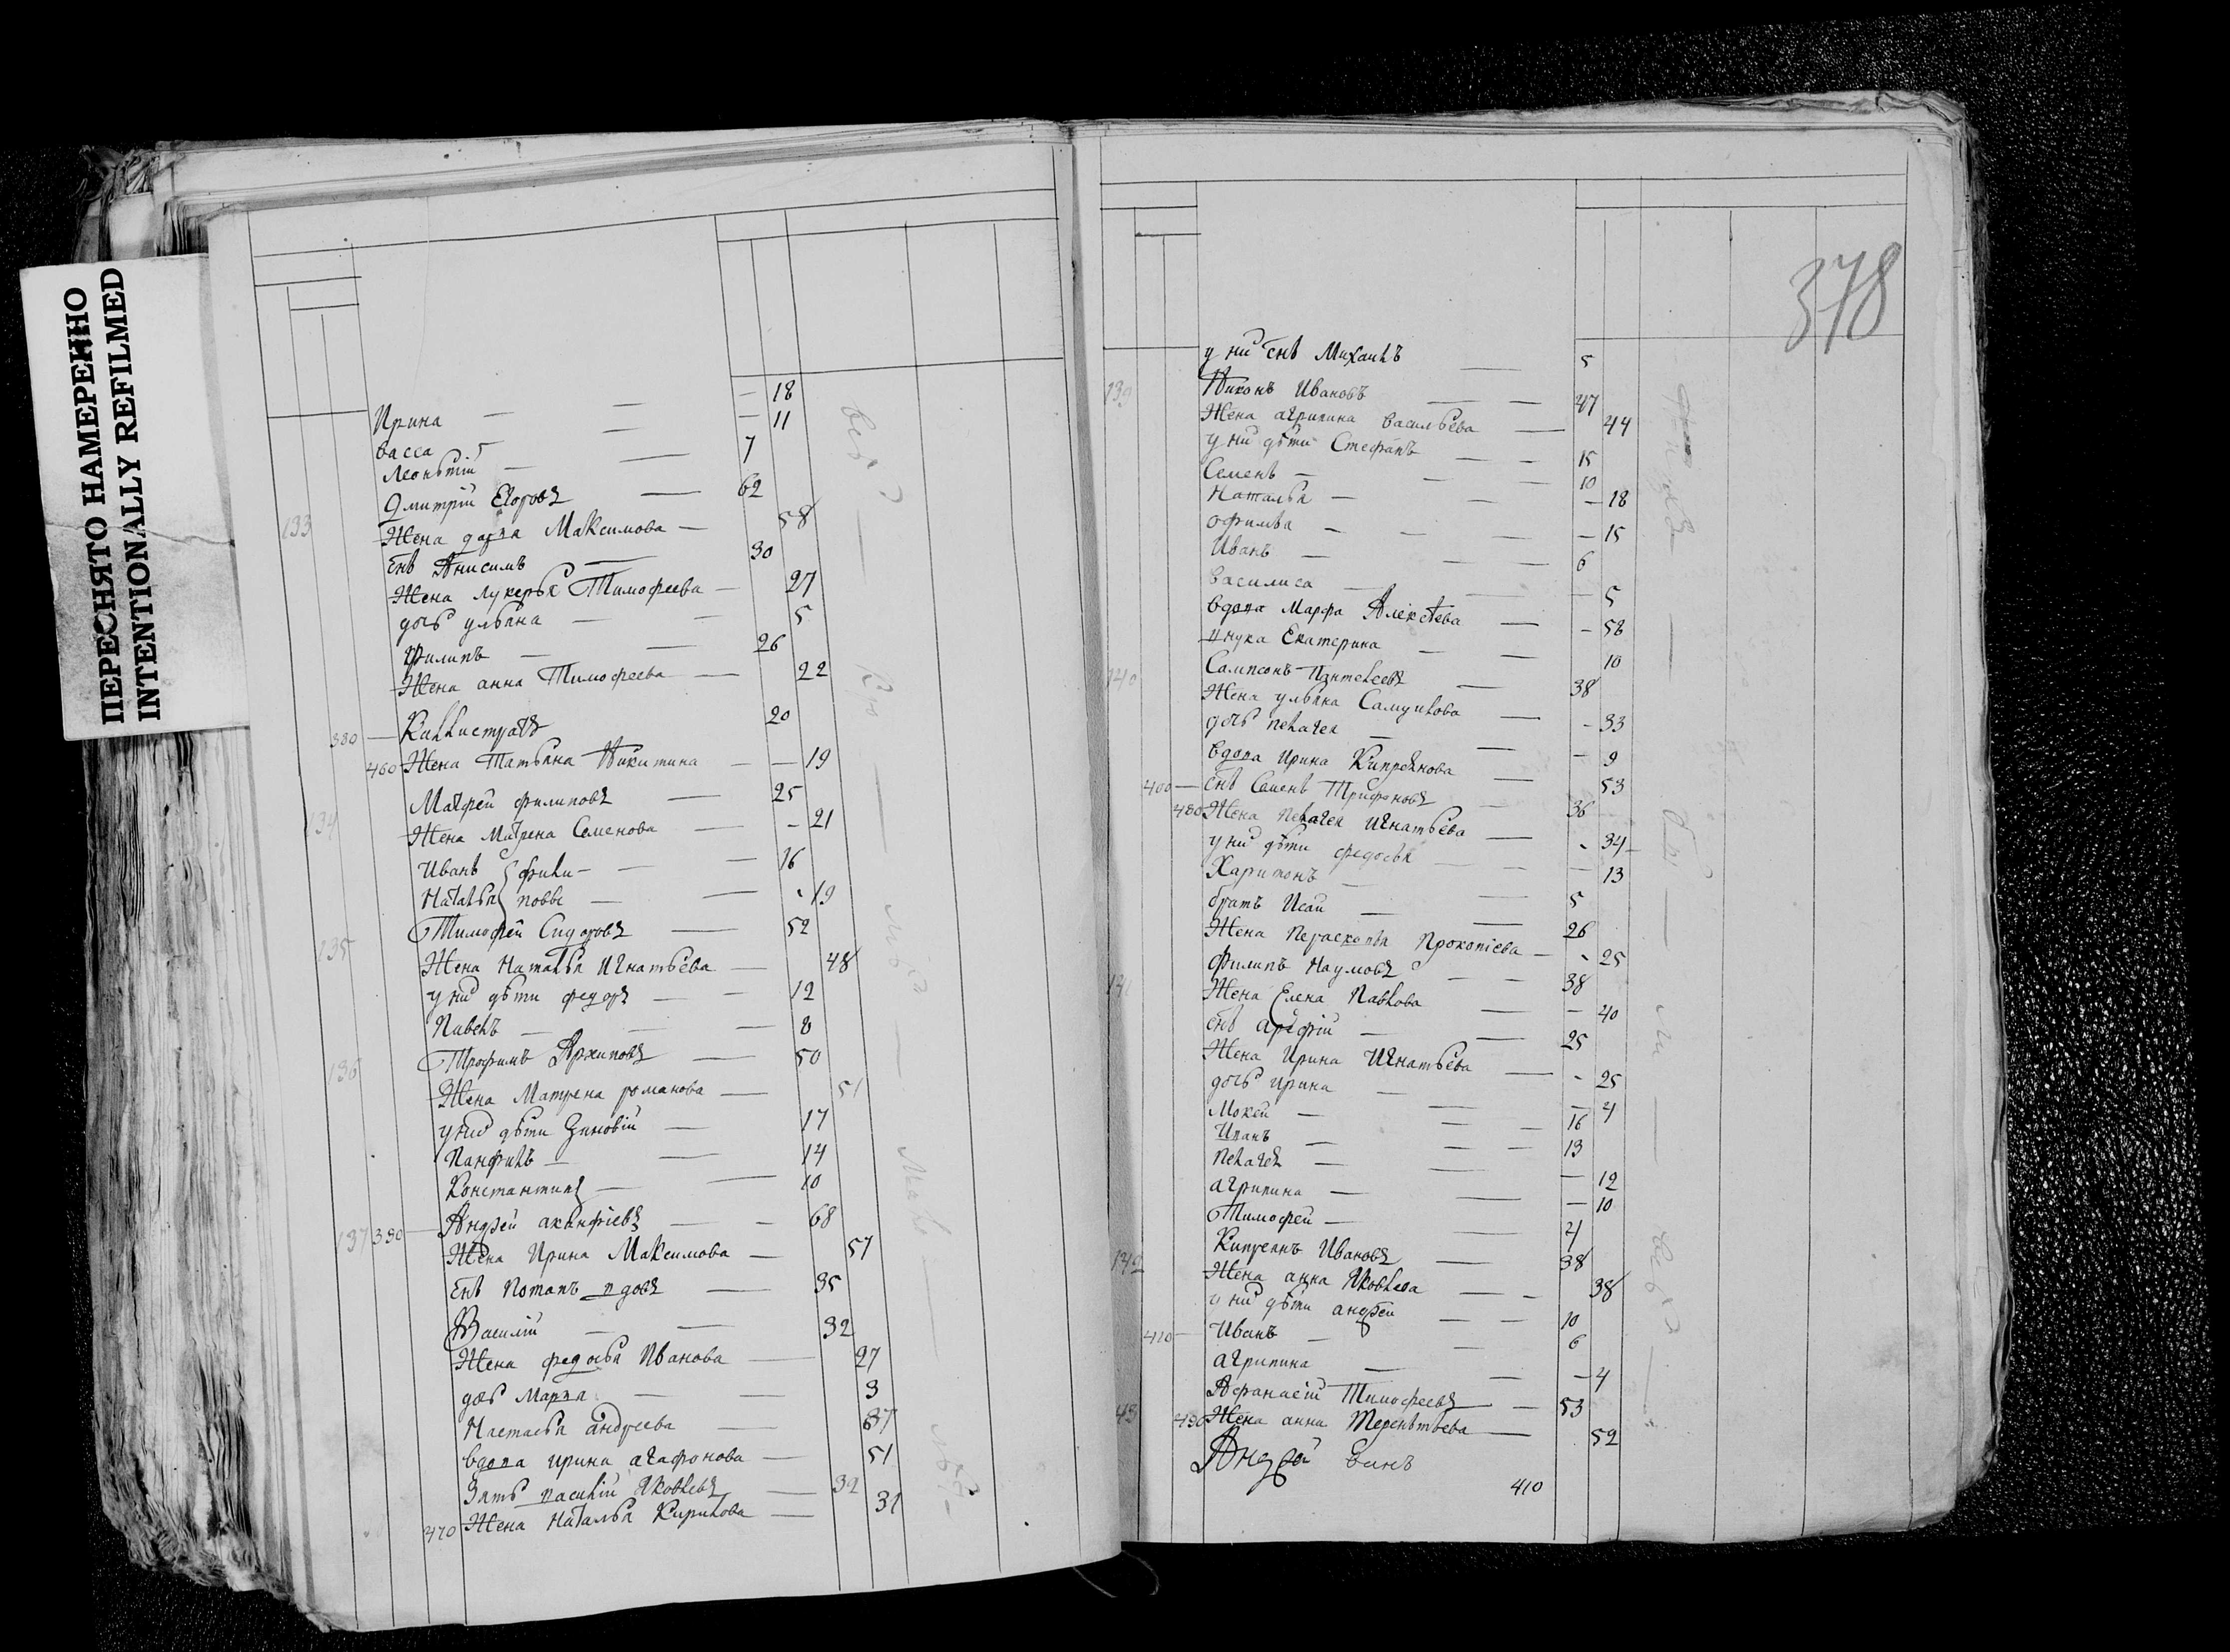 ПЕРЕСНЯТО НАМЕРЕННО
INTENTIONALLY REFILMED
Ирина — — — 18
васса — — 11
Леонътіи — — 7
133 Дмитріи Егоровъ — 62
Жена дарѧ Максимова — 58
снъ Анисимъ — 30
Жена лукерья Тимофеева — 27
дочь ульяна — — 5
Филипъ — — 26
Жена анна Тимофеева — 22
380 — Каллистратъ 20
460 Жена Татьяна Никитина — — 19
134 Матфей филиповъ — 25
Жена Матрена Семенова — - 21
Иванъ } фили- — — 16
Наталья } повы — — 19
135 Тимофей Сидоровъ — 52
Жена Наталья Игнатьева — 48
у них дѣти федоръ — — 12
Павелъ — — — 8
136 Трофимъ Архиповъ — 50
Жена Матрена романова — 51
у них дѣти Зиновіи — 17
Панфилъ — — 14
Константинъ — — 10
137 390 — Андрей акинфіевъ — - 68
Жена Ирина Максимова — 57
снъ Потапъ вдовъ — 35
Василіи — — 32
Жена федосья Иванова — 27
дочь Марѧ — — 3
Настасья андреева — 37
вдова ирина агафонова — 51
Зять василіи Яковлевъ — 32
470 Жена Наталья Кирилова — 31
378
у них снъ Михаилъ — 5
139 Никонъ Ивановъ — — 47
Жена агрипина васильева — 44
у них дѣти Стефанъ — - 15
Семенъ — - - 10
Наталья — - — 18
офимья - - — — 15
Иванъ — — - 6
василиса — — — 5
вдова Марфа Алексѣева — - 58
внука Екатерина — — 10
140 Сампсонъ Пантелеевъ — 38
Жена ульяна Самуилова — - 33
дочь пелагея — — - 9
вдова Ирина Кипреянова — 53
400 — снъ Семенъ Трифоновъ - 36
480 Жена Пелагея Игнатьева — - 34
у них дѣти федосья — — 13
Харитонъ — — 5
братъ Исаи — — 26
Жена Пераскопья Прокопіева — - 25
141 филипъ Наумовъ — - 38
Жена Елена Павлова — - 40
снъ арефіи — — 25
Жена Ирина Игнатьева — - 25
дочь ирина — — — 4
Мокеи — — — 16
Иванъ — — - 13
Пелагея — — — 12
агрипина — — — 10
Тимофей — — 4
142 Кипреянъ Ивановъ — 38
Жена анна Яковлева — - 38
у них дѣти андрей — - 10
410 — Иванъ — - 6
агрипина — — - 4
143 Афанасіи Тимофеевъ — — 53
490 Жена анна Терентьева — 52
410